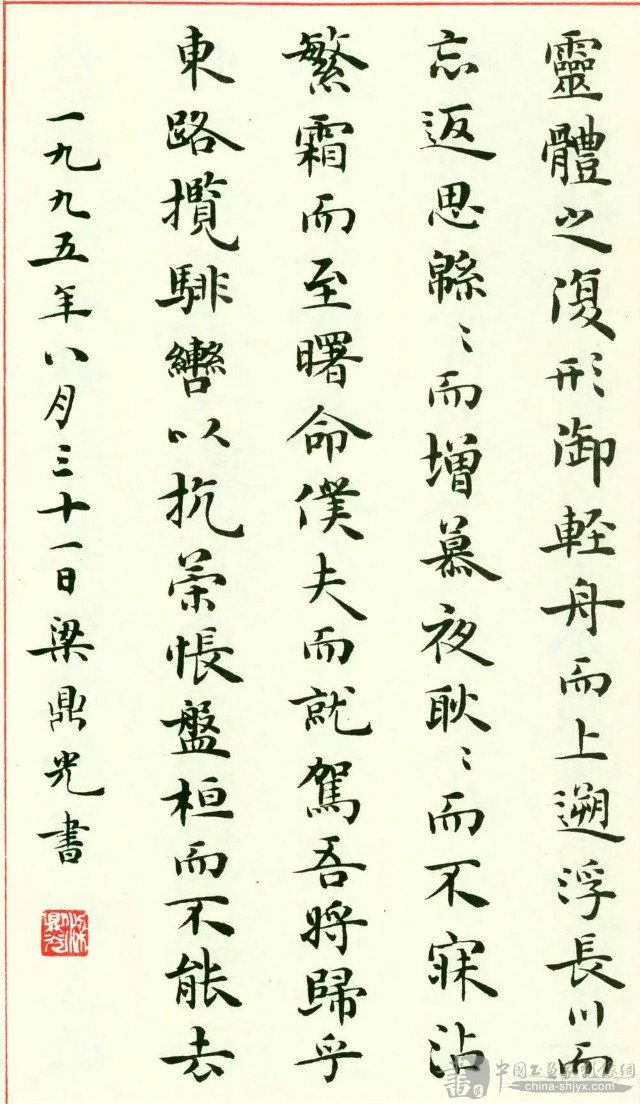 靈體之復形御輕舟而上遡浮長川而
忘返思緜〻而增慕夜耿〻而不寐沾
繁霜而至曙命僕夫而就駕吾將歸乎
東路攬騑轡以抗策悵盤桓而不能去
一九九五年八月三十一日梁鼎光書
china-shjyx.com